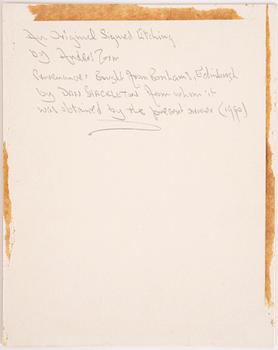 An Original Signed Etching
by Anders Zorn
Provenance: Bought from Bonhams, Edinburgh
by DAN SHACKLETON from whom it
was obtained by the present owner (1990)